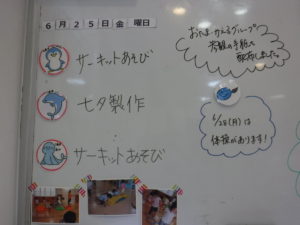 6月25日金曜日
サーキットあそび
七夕製作
サーキットあそび
おたま・かえるグループ
参観の手紙を
配布しました。
6/28(月)は
体操があります!